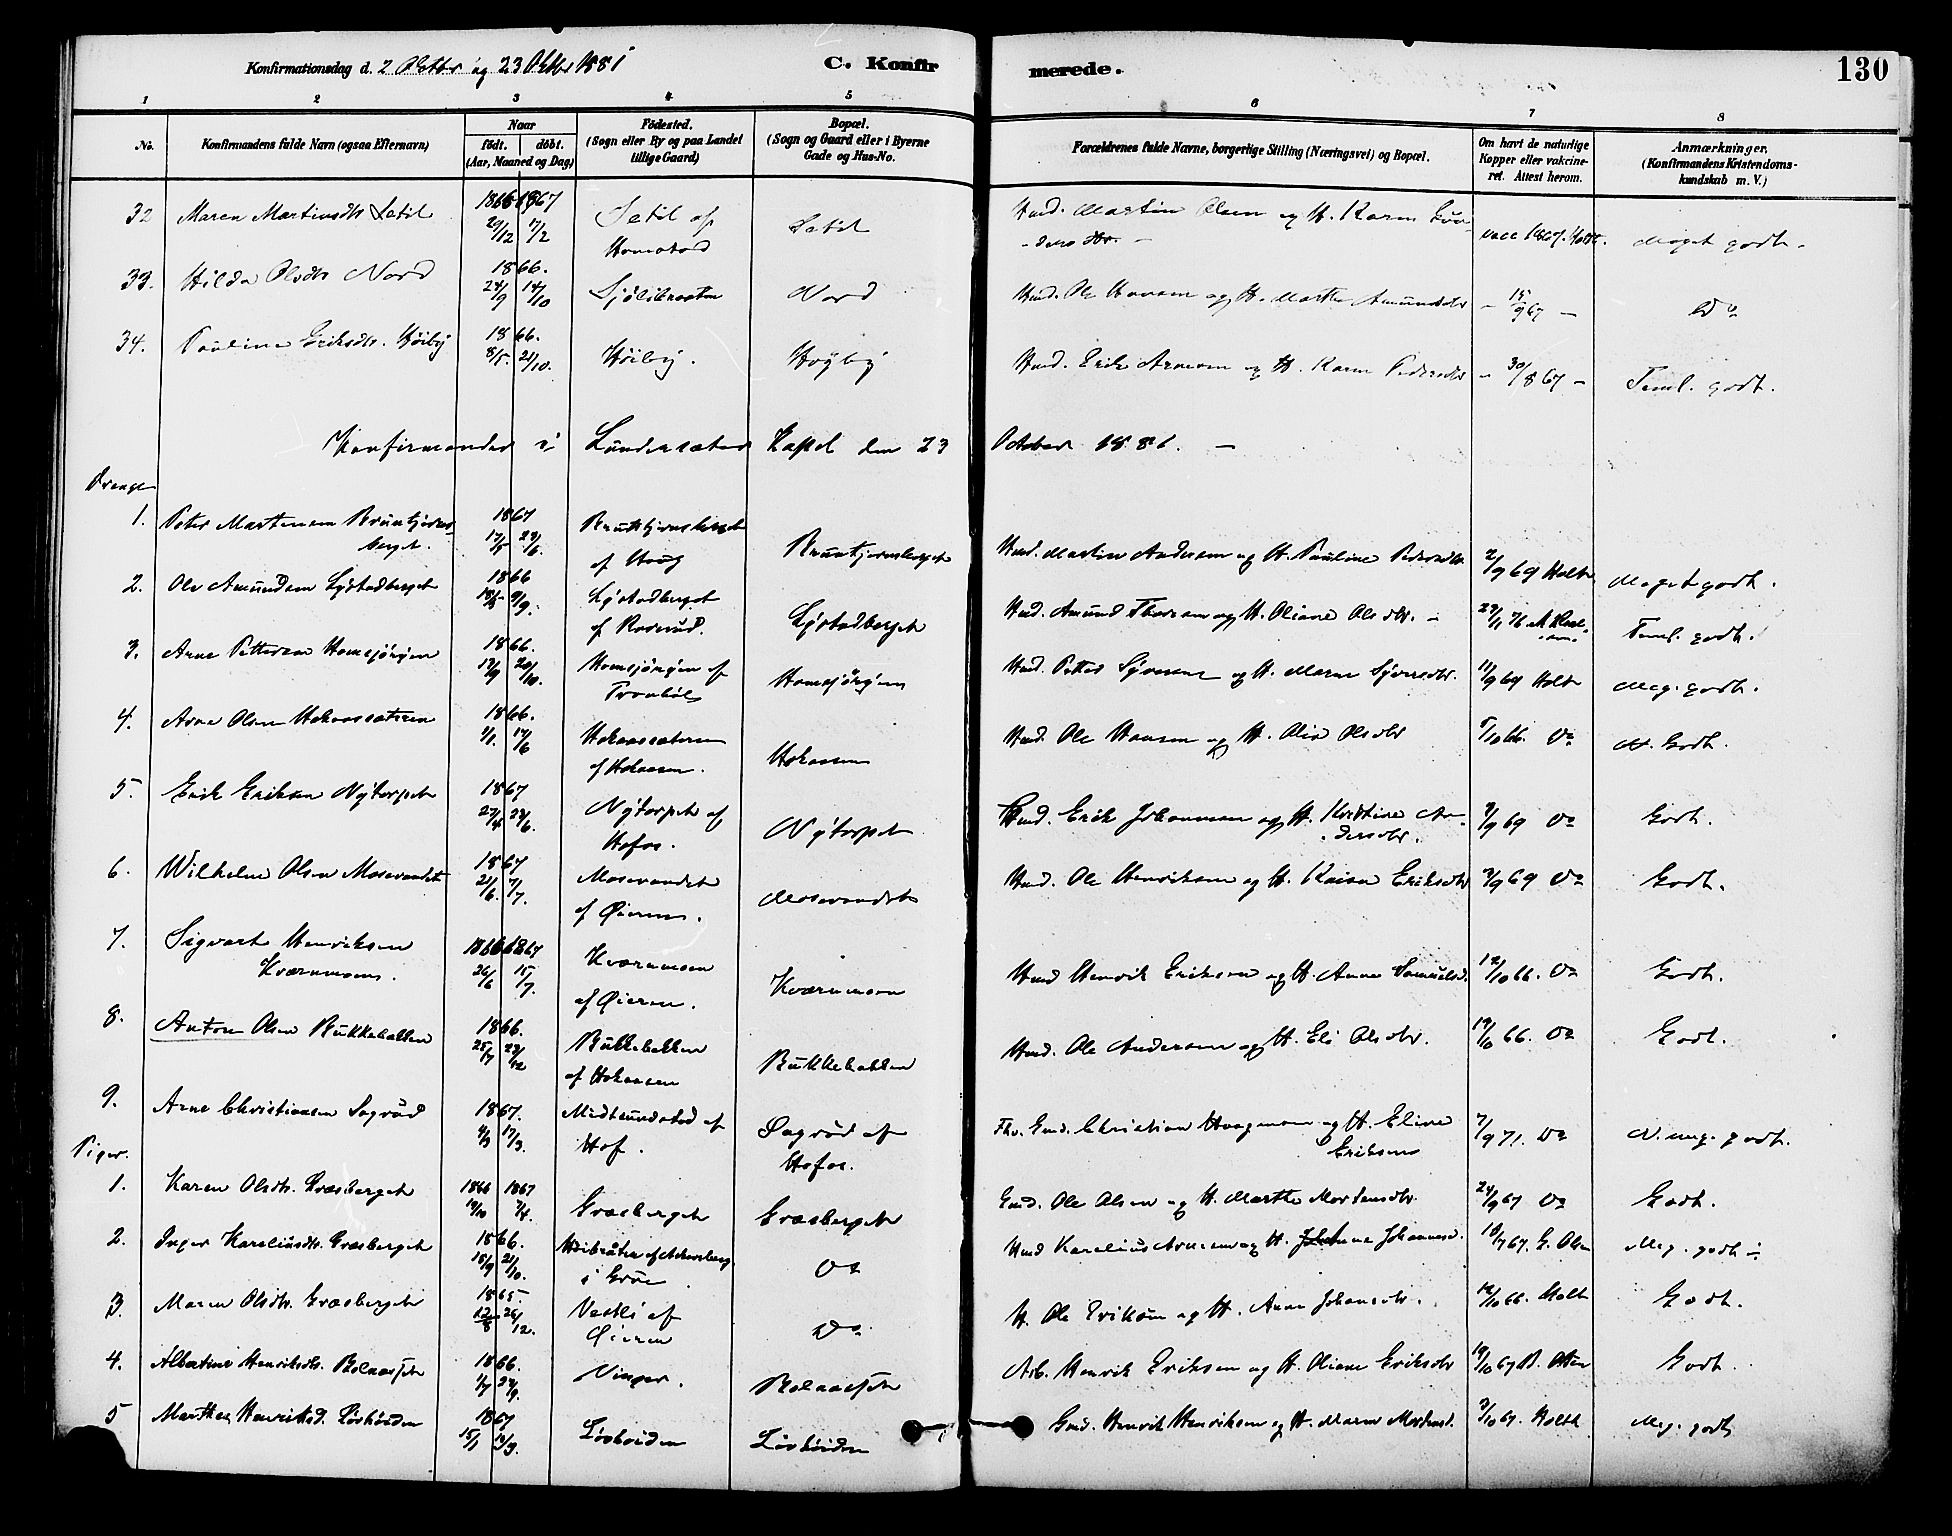 Konfirmationsdag d. 2 Oktbr og 23 Oktbr 1881
C. Konfir merede.
130
1 2 3 4 5 6 7 8
No.
Konfirmandens fulde Navn (ogsaa Efternavn)
Naar
født. døbt.
(Aar, Maaned og Dag)
Födested.
(Sogn eller By og paa Landet
tillige Gaard)
Bopæl.
(Sogn og Gaard eller i Byerne
Gade og Hus-No.
Forældrenes fulde Navne, borgerlige Stilling (Næringsvei) og Bopæl.
Om havt de naturlige
Kopper eller vakcine-
ret. Attest herom.
Anmærkninger.
(Konfirmandens Kristendoms-
kundskab m. V.)
32 Maren Martinsdtr Setil 1866 1867 29/12 17/2 Setil af Setil Martin Olsen og H. Karen Meget godt.
33. Hilda Olsdtr Nord 1866. 24/9 14/10 Nord Ole Hansen og H. Marthe Amundsdtr - 15/9 67 - Do
34. Pauline Eriksdtr. Høiby 1866. 8/5. 21/10. Høiby. Høyby Erik Arnesen og H. Karen Pedersdtr - 30/8 67 - Teml. godt.
Konfirmander i Lundersæter Kapel den 23 October 1881. -
Drenge
1. Peter Martinsen Bruntjerns-
berget. 1867 17/5 29/6. Bruntjernsberget
af Haug Bruntjernsberget Martin Andersen og H. Pauline Pedersdtr 2/9 69 Holte Meget godt.
2. Ole Amundsen Lystadberget 1866 9/9. Lystadberget
af Roverud. Lystadberget Amund Thoresen og H. Oliane Olsdtr. - 29/1 76 Teml. godt.
3. Arne Pettersen Homsjøhøjen 1866. 20/10. af Petter Syversen og H. Maren Syversdtr. 11/9 69 Holte Meg. godt.
4. Arne Olsen Hokaassæteren 1866. 1/1. 17/6 Hokaassæteren
af Hokaasen. Hokaasen Ole Hansen og H. Olia Olsdtr 5/10 66. Do N. Godt.
5. Erik Eriksen Nytorpet 1867 27/4 29/6. Nytorpet af
Hofos. Nytorpet Erik Johannesen og H. Kristine An-
dersdtr. 2/9 69 Do Godt.
6. Wilhelm Olsen Mosevandet 1867 21/6. 7/7. Mosevandet
af Øieren. Mosevandet Ole Henriksen og H. Kaisa Eriksdtr 2/9 69 Do Godt.
7. Sigvart Henriksen
Kværnmoen. 1866 1867 26/6 15/7. Kværnmoen
af Øieren. Kværnmoen Henrik Eriksen og H. Anne Samuelsd. 12/10 66. Do Godt.
8. Anton Olsen Bukkebakken 1866. 25/7 23/12 Bukkebakken
af Hokaasen Bukkebakken Ole Andersen og H. Eli Olsdtr. 19/10 66. Do Godt.
9. Arne Christiansen Sagrud 1867. 4/3 17/3. af
Hof. Sagrud af
Hofos. Christian Haagensen og H. Eline
Eriksen 7/9 71. Do N. meg. godt.
Piger.
1. Karen Olsdtr. Græsberget 1866 1867 19/10 7/4. Græsberget Græsberget Ole Olsen og H. Marthe Mortensdtr. 24/9 67 Do Godt.
2. Inger Kareliusdtr. Græsberget 1866. 15/9 21/10. i Grue Do Karelius Arnesen og H. Johannesd. 10/7 67. G. Olsen Meg. godt
3. Maren Olsdtr. Græsberget 1865. 12/8 26/12. Vestli af
Øieren Do Ole Eriksen og H. Anne Johansdtr. 12/10 66. Holt Godt.
4. Albertine Henriksdtr. 1866. 1/7 29/9. Vinger. Arb. Henrik Eriksen og H. Oliane Eriksdtr 19/10 67 Godt.
5 Marthea Henriksd. Løvhøiden 1867 15/1 Løvhøiden Løvhøiden Henrik Henriksen og H. Maren Mortensd. 3/10 67. Holth Meg. godt